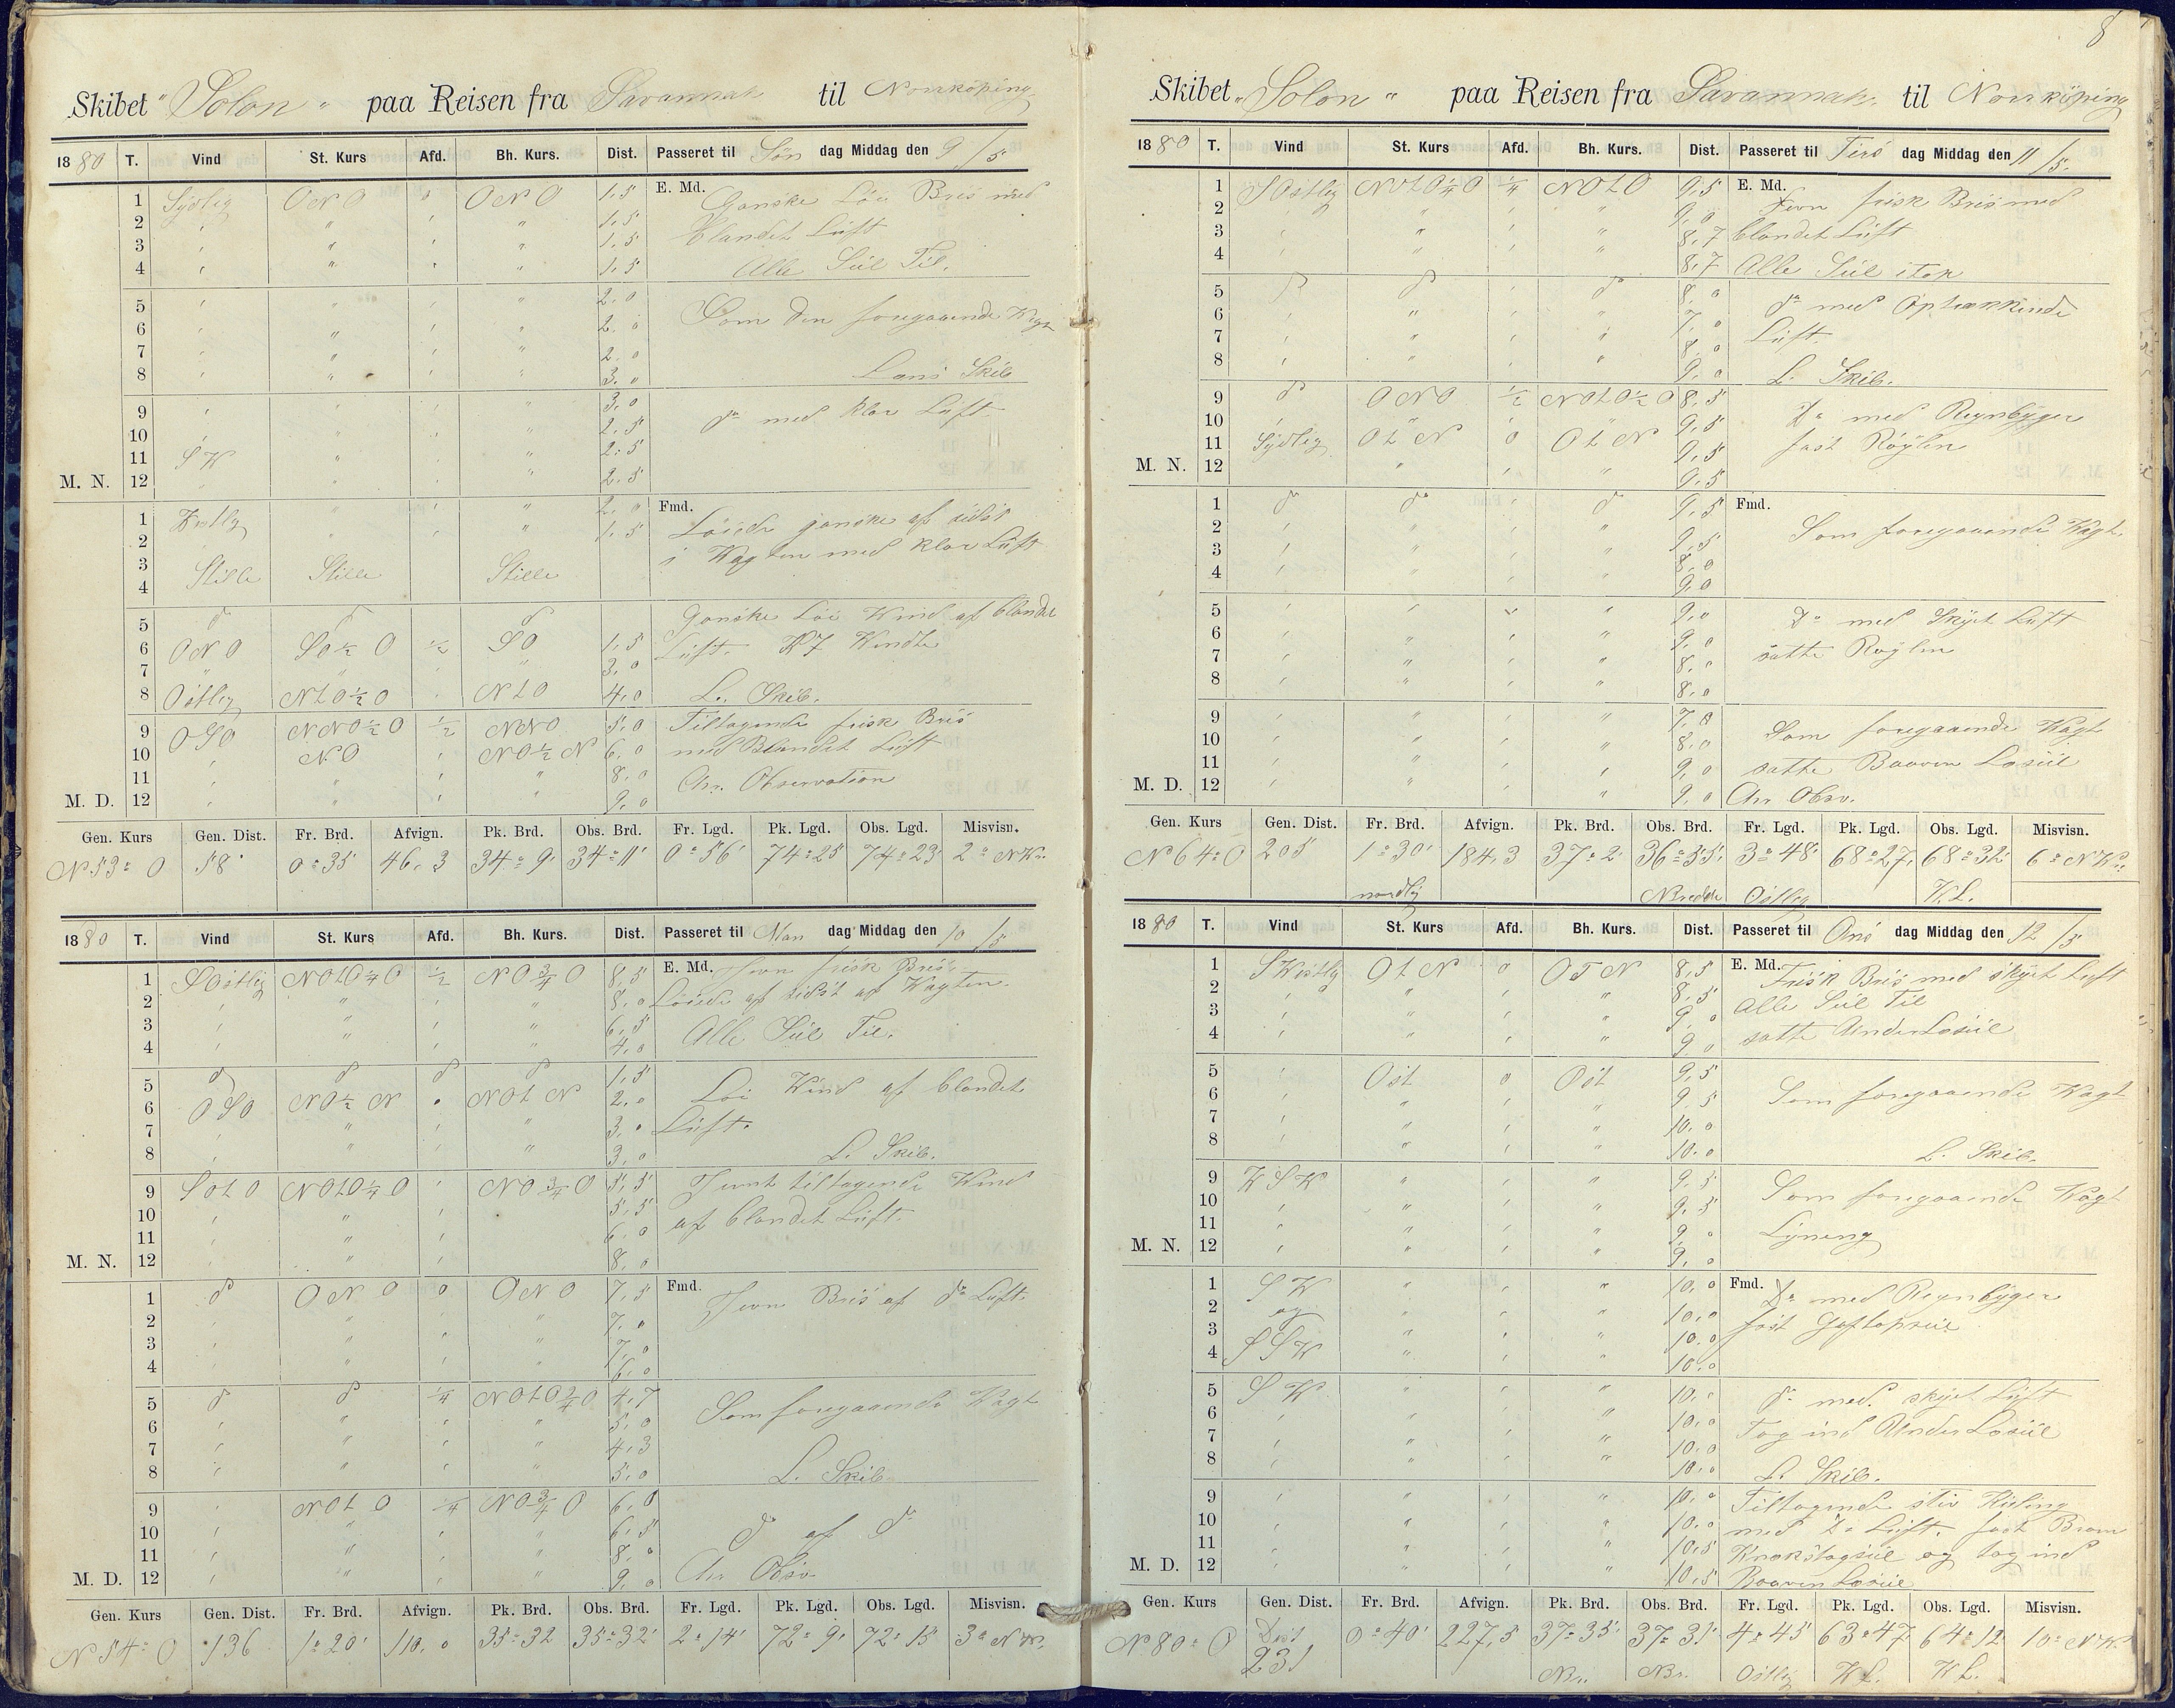 8
Skibet "Solon" paa Reisen fra Savannah til Norrköping
1880 T. Vind St. Kurs Afd. Bh. Kurs. Dist. Passeret til Søn dag Middag den 9/5
1 Sydlig ONO 0 ONO 1,5 E. Md. Ganske Löi Bris med
2 " " " " 1,5 blandet Luft
3 " " " " 1,5
4 " " " " 1,5 Alle Seil Til.
5 " " " " 2,0
6 " " " " 2,0 Som den foregaaende Vagt
7 " " " " 2,0
8 " " " " 3,0 Lens Skib
9 " " " " 3,0
10 " " " " 2,5 do med klar Luft
11 SW " " " 2,5
M. N. 12 " " " " 2,5
1 " " " 2,0 Fmd. Löiede ganske af sidst
2 " " " 1,5 i Wagten med klar Luft
3
4 Stille Stille Stille
5 do do do Ganske Löi Wind af blandet
6 ONO SO½O ½ SO 1,5 Luft. Kl 7 Wendte
7 " " " 3,0
8 Østlig NtO½O " NtO 4,0 L. Skib.
9 OSO NNO½O ½ NNO 5,0 Tiltagende frisk Bris
10 " NO " NO½N 6,0 med Blandet Luft
11 " " " " 8,0 Ahr. Observation
M. D. 12 " " " " 9,0
Gen. Kurs Gen. Dist. Fr. Brd. Afvign. Pk. Brd. Obs. Brd. Fr. Lgd. Pk. Lgd. Obs. Lgd. Misvisn.
N 53° O 58' 0° 35' 46,3 34° 9' 34° 11' 0° 56' 74° 25' 74° 23' 2° NW.
1880 T. Vind St. Kurs Afd. Bh. Kurs. Dist. Passeret til Man dag Middag den 10/5
1 SOstlig NOtO¼O ½ NO¾O 8,5 E. Md. Jevn frisk Bris
2 " " " " 8,0 Löiede af sidst af Wagten.
3 " " " " 6,5
4 " " " " 4,0 Alle Seil Til.
5 do do do do 1,5
6 OSO NO½N 0 NOtN 2,0 Löi Wind af blandet
7 " " " " 3,0 Luft.
8 " " " " 3,0 L. Skib.
9 SOtO NOtO¼O " NO¾O 5,5 Jevnt tiltagende Wind
10 " " " 5,5 af blandet Luft.
11 " " " 6,0
M. N. 12 " " " 8,0
1 do ONO 0 ONO 7,5 Fmd. Jevn Bris af do Luft.
2 " " " " 7,0
3 " " " " 7,0
4 " " " " 6,0
5 do do ¼ NOtO¾O 4,7
6 " " " " 5,0 Som foregaaende Wagt
7 " " " " 4,3
8 " " " " 5,0 L. Skib
9 " NOtO ¼ NO¾O 6,0
10 " " " " 6,5 do af do
11 " " " " 8,0
M. D. 12 " " " " 9,0 Ahr Obsv
Gen. Kurs Gen. Dist. Fr. Brd. Afvign. Pk. Brd. Obs. Brd. Fr. Lgd. Pk. Lgd. Obs. Lgd. Misvisn.
N 54° O 136 1° 20' 110,0 35° 32 35° 32' 2° 14' 72° 9' 72° 15' 3° NW.
Skibet "Solon" paa Reisen fra Savannah til Norrköping
1880 T. Vind St. Kurs Afd. Bh. Kurs. Dist. Passeret til Tirs dag Middag den 11/5.
1 SOstlig NOtO¼O ¼ NOtO 9,5 E. Md. Jevn frisk Bris med
2 " " " " 9,0
3 " " " " 8,7 blandet Luft
4 " " " " 8,7 Alle Seil itop
5 do do " do 8,0 do med Optrækkende
6 " " " " 7,0
7 " " " " 8,0 Luft.
8 " " " " 9,0 L. Skib.
9 do ONO ½ NOtO½O 8,5 Do med Regnbyger
10 " " " " 9,5
11 Sydlig OtN 0 OtN 9,5 fast Röylen
M. N. 12 " " " 9,5
1 do do " do 9,5 Fmd.
2 " " " " 9,5 Som foregaaende Wagt.
3 " " " " 8,0
4 " " " " 9,0
5 " " " " 9,0 Do med Skyet Luft
6 " " " " 9,0
7 " " " " 8,0 satte Röylen
8 " " " " 8,0
9 " " " " 7,0
10 " " " " 8,0 Som foregaaende Wagt
11 " " " " 9,0 satte Baaven Læseil
M. D. 12 " " " " 9,0 Ahr Obsv.
Gen. Kurs Gen. Dist. Fr. Brd. Afvign. Pk. Brd. Obs. Brd. Fr. Lgd. Pk. Lgd. Obs. Lgd. Misvisn.
N 64° O 205' 1° 30' 184,3 37° 2' 36° 55' 3° 48' 68° 27' 68° 32' 6° NW.
nordlig NBredde Östlig W.L.
1880 T. Vind St. Kurs Afd. Bh. Kurs. Dist. Passeret til Ons dag Middag den 12/5
1 SWestlig OtN 0 OTN 8,5 E. Md. Frisk Bris med skyet Luft
2 " " " " 8,5 Alle Seil Til
3 " " " " 9,0
4 " " " " 9,0 satte UnderLæseil
5 " Ost 0 Ost 9,5
6 " " " " 9,5 Som foregaaende Wagt
7 " " " " 10,0
8 " " " " 10,0 L. Skib.
9 WSW " " " 9,5
10 " " " " 9,5 Som foregaaende Wagt
11 " " " " 9,0 Lyneng
M. N. 12 " " " " 9,0
1 SW " " " 10,0 Fmd. Do med Regnbyger
2 og " " " 10,0 fast Gaftopseil
3 " " " 10,0
4 SSW " " " 10,0
5 SW " " " 10,0 do med. skyet Luft
6 " " " " 10,0
7 " " " " 10,0 Tog ind Under Læseil
8 " " " " 10,0 L. Skib.
9 " " " " 10,0 Tiltagende stiv Kuling
10 " " " " 10,0 med Do Luft. fast Bram
11 " " " " 10,5 og tog ind
M. D. 12 " " " " 10,5 Baaven Læseil
Gen. Kurs Gen. Dist. Fr. Brd. Afvign. Pk. Brd. Obs. Brd. Fr. Lgd. Pk. Lgd. Obs. Lgd. Misvisn.
N 80° O Dist 231 0° 40' 227,5 37° 35' 37° 31' 4° 45' 63° 47' 64° 12' 10° NW.
NBr. NBr. Östlig W L. W L.